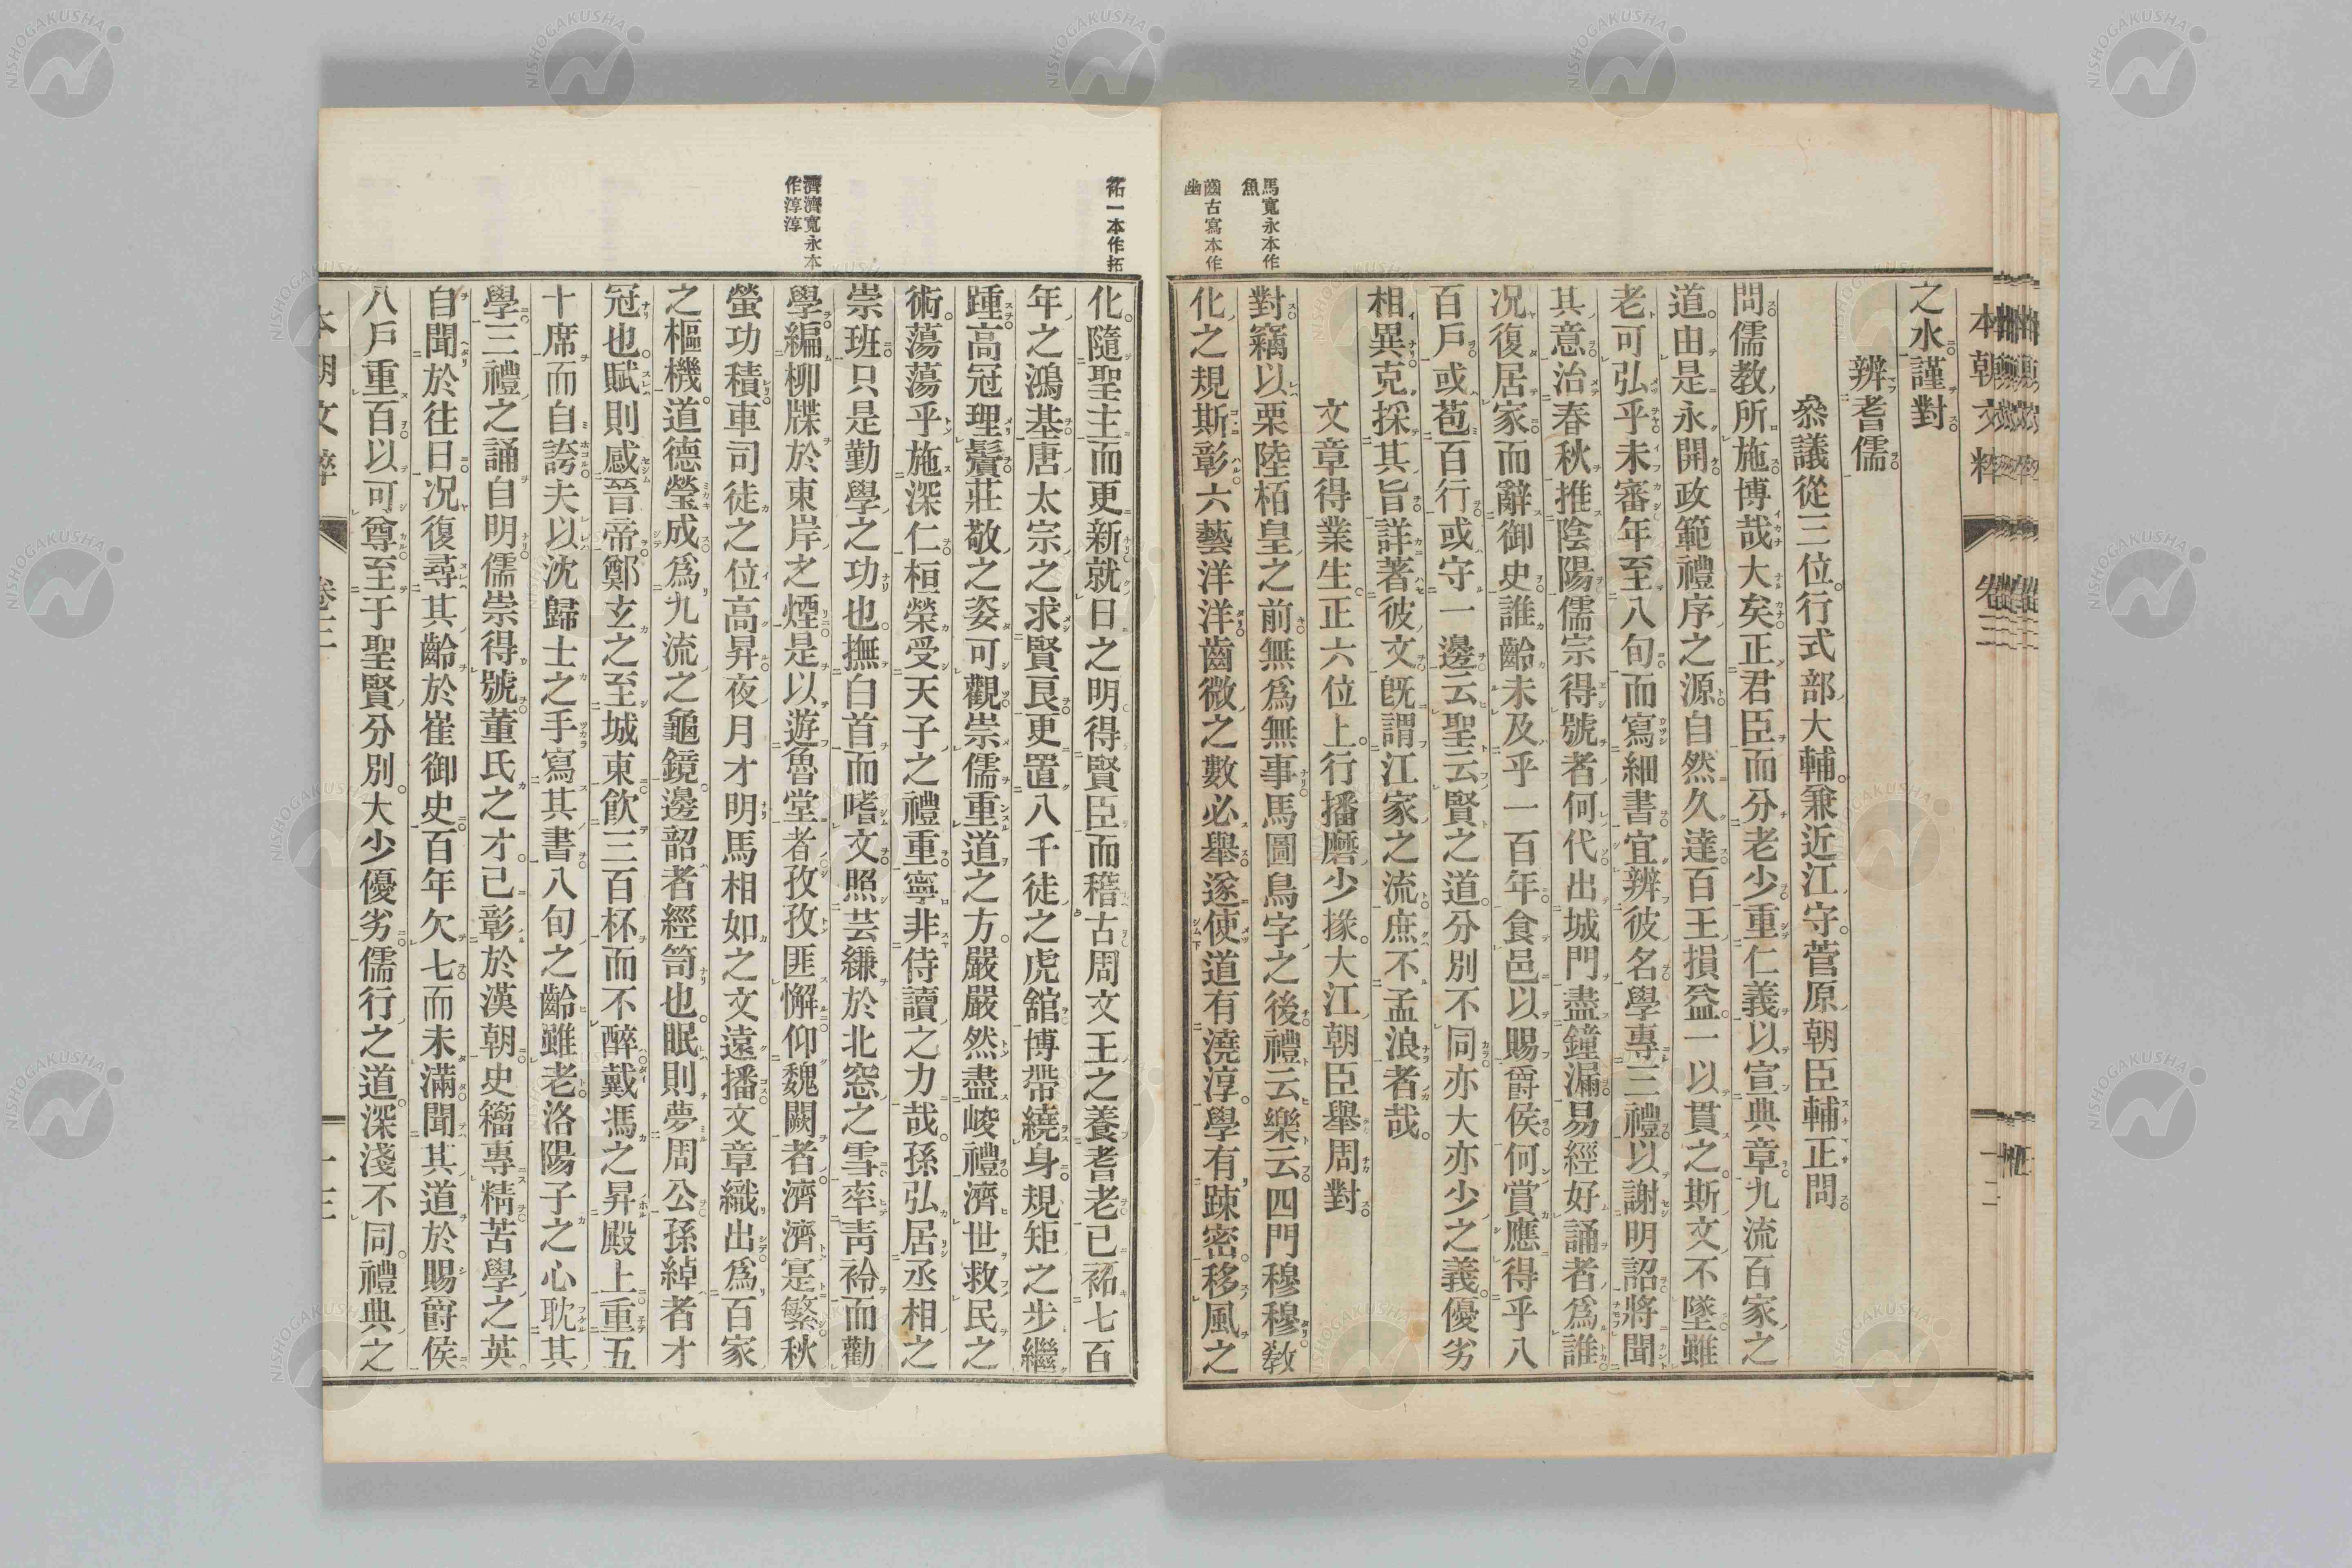 本朝文粹 卷三 十二
之水謹對
辨耆儒
叅議從三位行式部大輔兼近江守菅原朝臣輔正問
問儒教所施博哉大矣正君臣而分老少重仁義以宣典章九流百家之
道由是永開政範禮序之源自然久達百王損益一以貫之斯文不墜雖
老可弘乎未審年至八旬而寫細書宜辨彼名學專三禮以謝明詔將聞
其意治春秋推陰陽儒宗得號者何代出城門盡鐘漏易經好誦者爲誰
况復居家而辭御史誰齡未及乎一百年食邑以賜爵侯何賞應得乎八
百戶或苞百行或守一邊云聖云賢之道分別不同亦大亦少之義優劣
相異克採其旨詳著彼文旣謂江家之流庶不孟浪者哉
文章得業生正六位上行播磨少掾大江朝臣舉周對
對竊以栗陸栢皇之前無爲無事馬圖鳥字之後禮云樂云四門穆穆敎
化之規斯彰六藝洋洋齒微之數必舉遂使道有澆淳學有踈密移風之
馬寬永本作
魚
齒古寫本作
幽
化隨聖主而更新就日之明得賢臣而稽古周文王之養耆老已祏七百
年之鴻基唐太宗之求賢良更置八千徒之虎舘博帶繞身規矩之步繼
踵高冠理鬢莊敬之姿可觀崇儒重道之方嚴嚴然盡峻禮濟世救民之
術蕩蕩乎施深仁桓榮受天子之禮重寧非侍讀之力哉孫弘居丞相之
崇班只是勤學之功也撫白首而嗜文照芸縑於北窓之雪率靑衿而勸
學編柳牒於東岸之煙是以遊魯堂者孜孜匪懈仰魏闕者濟濟寔繁秋
螢功積車司徒之位高昇夜月才明馬相如之文遠播文章織出爲百家
之樞機道德瑩成爲九流之龜鏡邊韶者經笥也眠則夢周公孫綽者才
冠也賦則感晉帝鄭玄之至城東飮三百杯而不醉戴馮之昇殿上重五
十席而自誇夫以沈歸士之手寫其書八旬之齡雖老洛陽子之心耽其
學三禮之誦自明儒崇得號董氏之才已彰於漢朝史籀專精苦學之英
自聞於往日况復尋其齡於崔御史百年欠七而未滿聞其道於賜爵侯
八戶重百以可尊至于聖賢分別大少優劣儒行之道深淺不同禮典之
祏一本作拓
濟濟寬永本
作淳淳
本朝文粹 卷三 十三